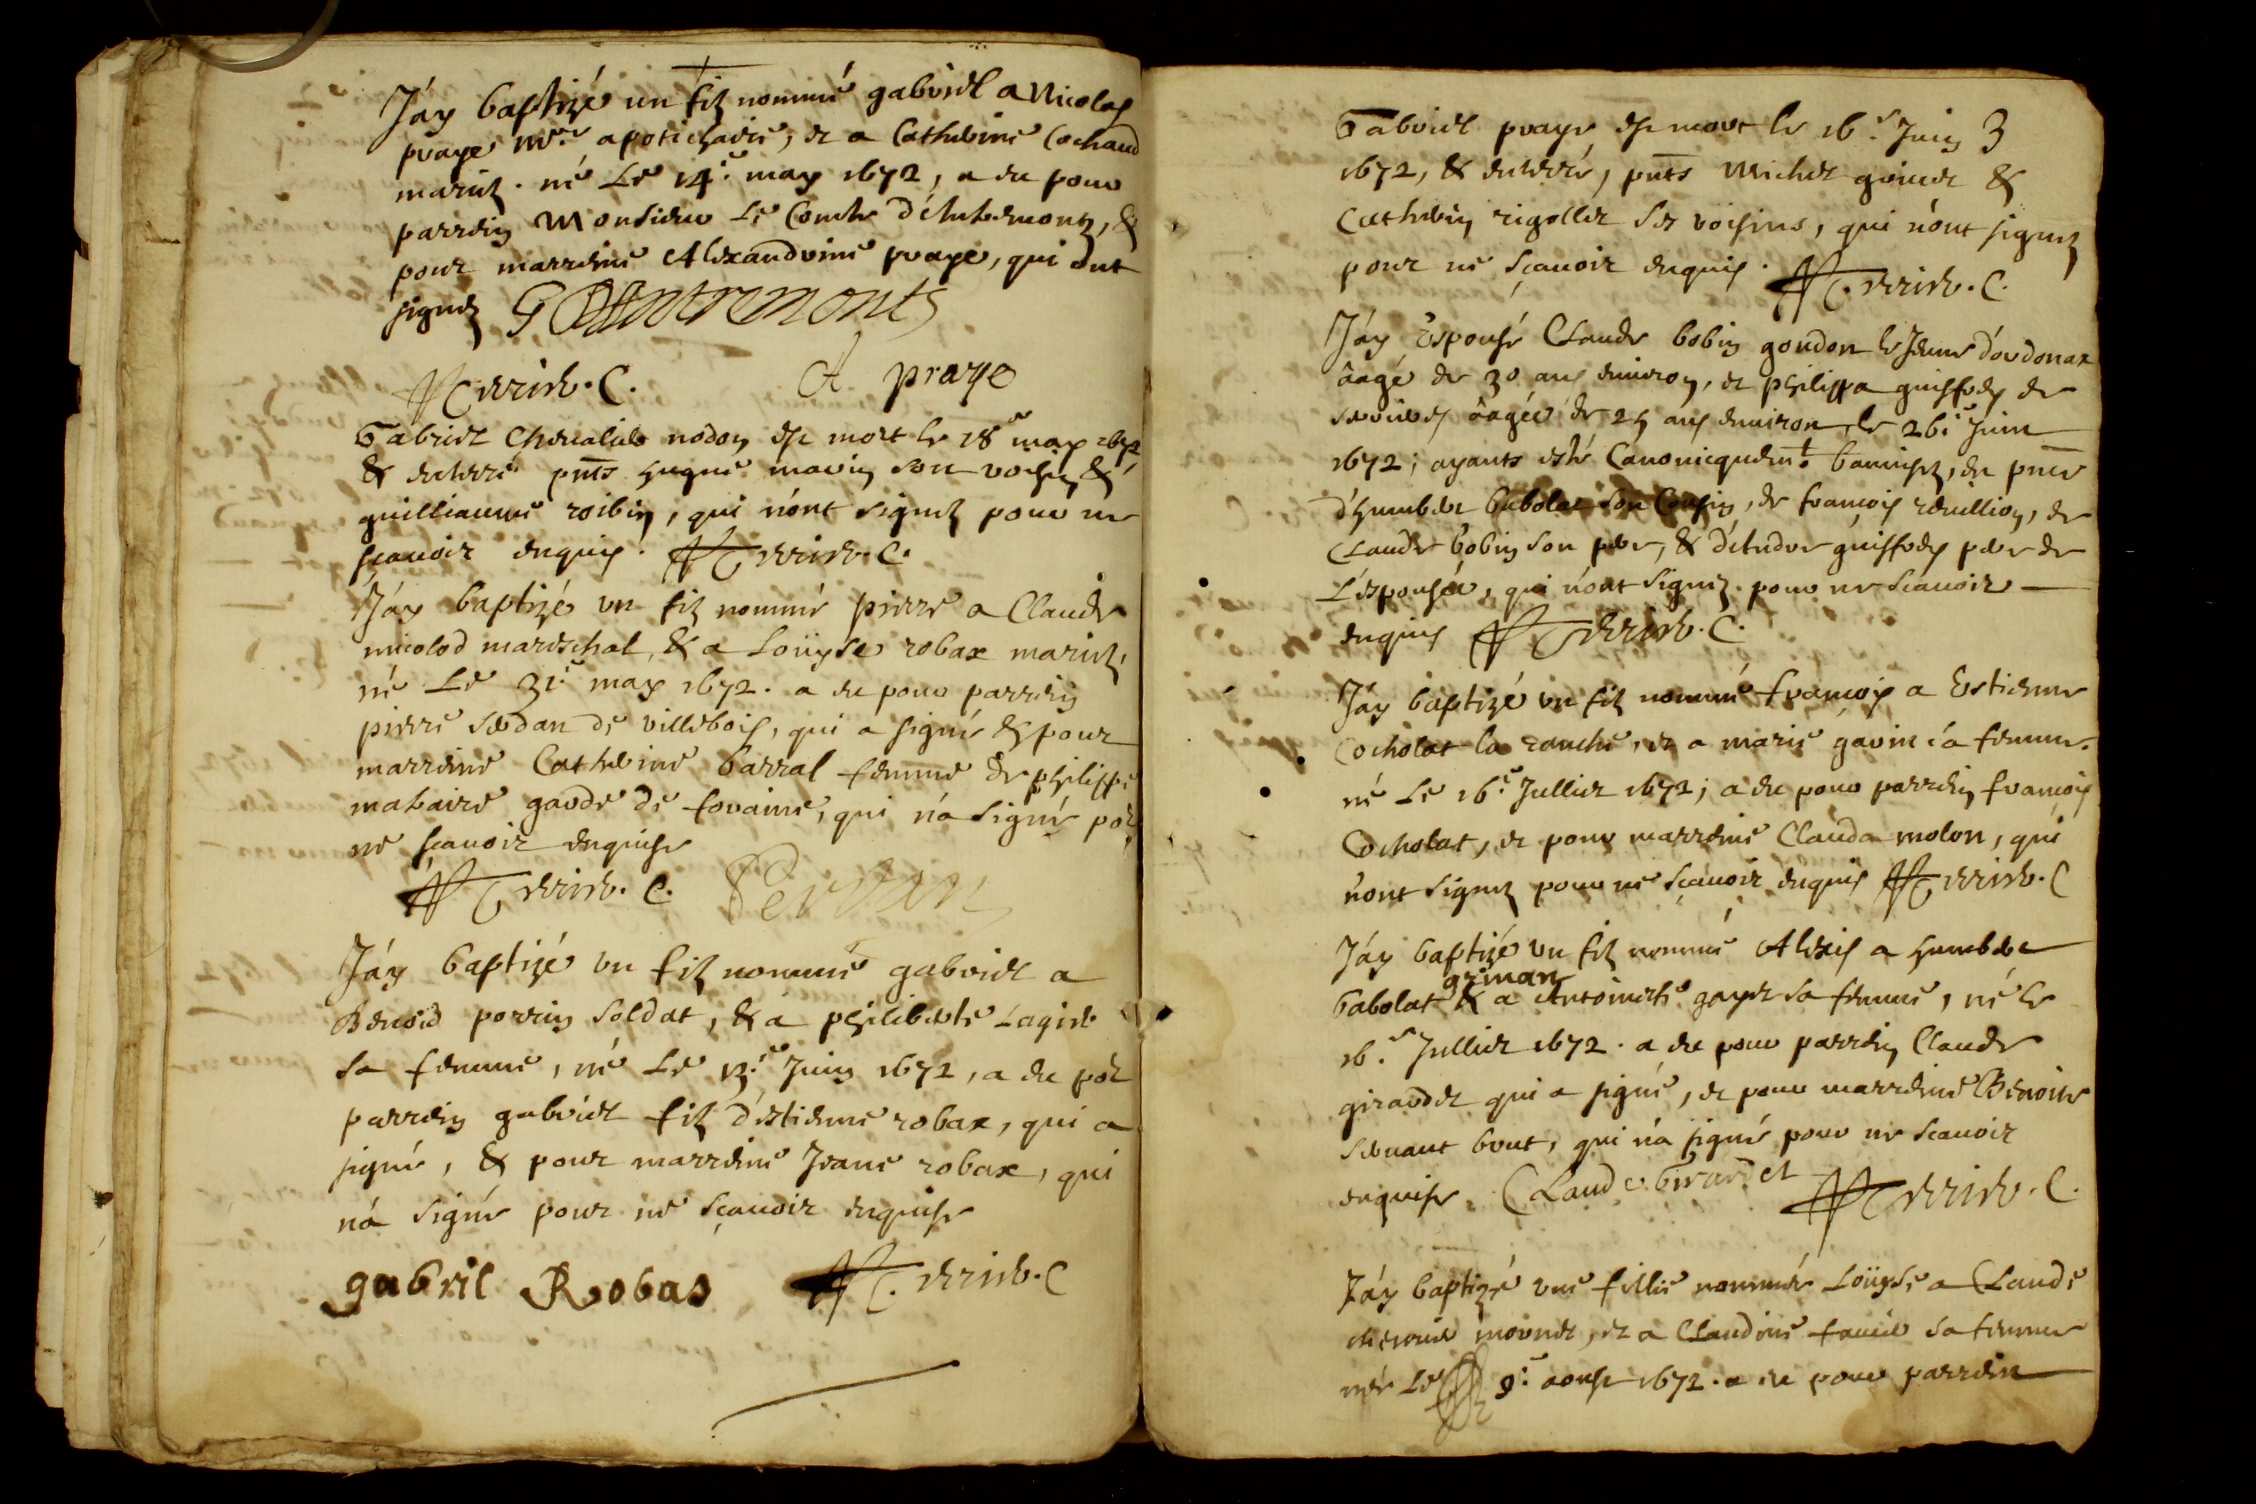 J'ay baptizé un filz nommé gabriel a Nicolas
praye m.re apotichaire, et a Catherine Cochand
mariez. né Le 14.e may 1672, a eu pour
parrein Monsieur Le Comte d'Antremontz, &
pour marreine Alexandrine praye, qui ont
signez G DAntremonts
Terrier. C. A praye
Gabriel Chevalier nodon est mort le 18.e may 1672
& enterré pnts hugue marin son voisin, &
guilliaume roibin, qui n'ont signez pour ne
sçavoir enquis. Terrier. C.
J'ay baptizé un filz nommé pierre a Claude
nicolod mareschal, & a Loüyse robax mariez,
né Le 31.e may 1672. a eu pour parrein
pierre serdan de villebois, qui a signé & pour
marreine Catherine barral femme de philippe
mataire garde de foraine, qui n'a signé por
ne sçavoir enquise
Terrier. C. P Serdan
J'ay baptizé un filz nommé gabriel a
Benoid perrin soldat, & a philiberte Lagier
sa femme, né Le 13.e Juin 1672, a eu por
parrein gabriel filz d'estienne robax, qui a
signé, & pour marreine Jeane robax, qui
n'a signé pour ne sçavoir enquise
gabril Robas Terrier. C
3
Gabriel praye est mort le 16.e Juin
1672, & enterré, pnts Michel &
Catherin rigollet ses voisins, qui n'ont signez
pour ne sçavoir enquis. Terrier. C.
J'ay espousé Claude bobin gondon le Jeune d'ordonax
âagé de 30 ans environ, et philippa guiffrey de
âagée de 25 ans environ, le 26.e Juin
1672; ayants esté Canonicquemt. bannisez, en pnce
d'humbert babolat son Cousin, de françois revillion, de
Claude bobin son per, & d'Antodor guiffrey per de
L'espousée, qui n'ont signez pour ne sçavoir
enquis Terrier. C.
J'ay baptizé un filz nommé françois a Estienne
Cocholat la ranche, et a marie gavin sa femme.
né Le 16.e Jullier 1672; a eu pour parrein françois
Cocholat, et pour marreine Clauda molon, qui
n'ont signez pour ne sçavoir enquis Terrier. C
J'ay baptizé un filz nommé Alexis a humbert
griman
babolat & a Antoinette gayet sa femme, né le
16.e Jullier 1672. a eu pour parrein Claude
girardet qui a signé, et pour marreine Benoite
servant bout, qui n'a signé pour ne sçavoir
enquise. Claude Girardet Terrier. C.
J'ay baptizé une fillie nommée Loüyse a Claude
mornet, et a Claudine favier sa femme
née Le 9.e aoust 1672. a eu pour parrein